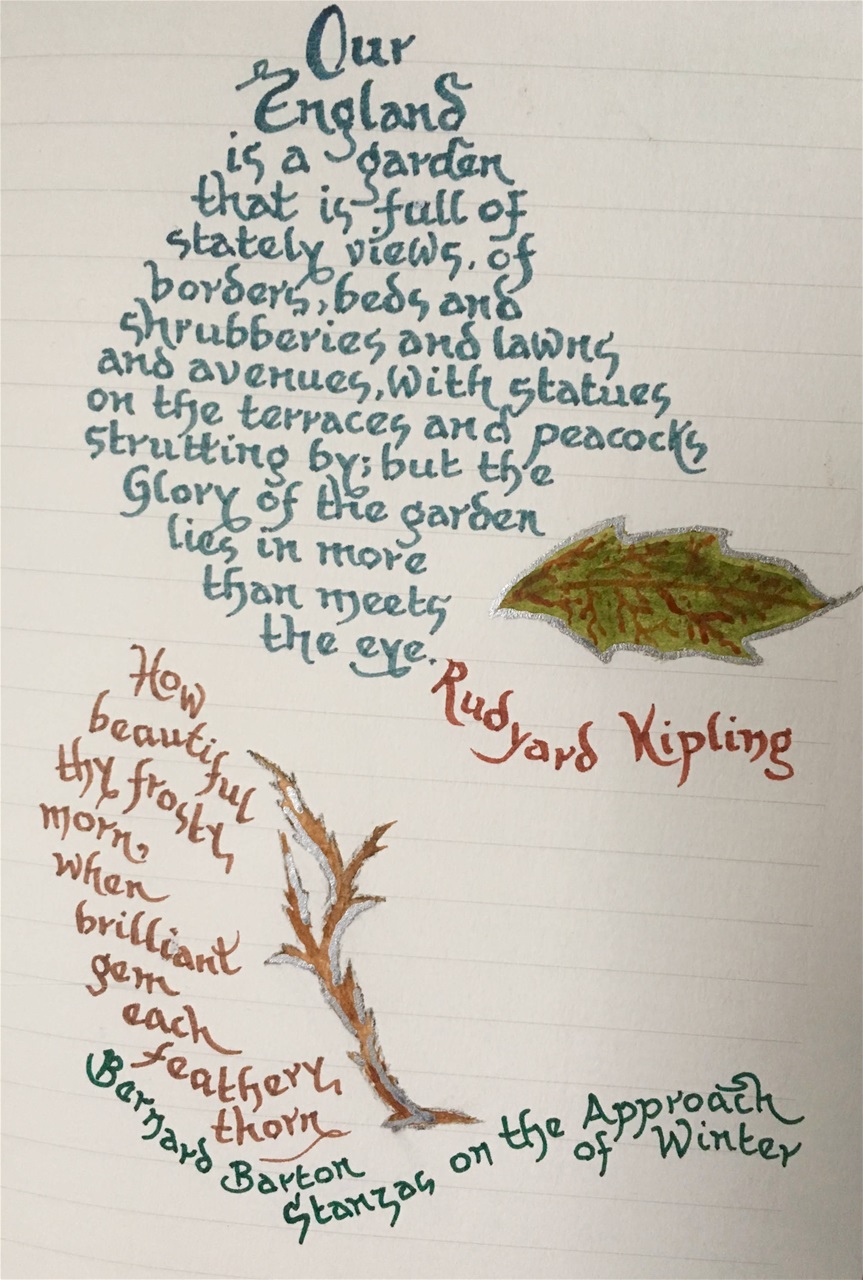 Our
England
is a garden
that is full of
stately views, of
borders, beds and
shrubberies and lawns
and avenues, With statues
on the terraces and peacocks
strutting by; but the
Glory of the garden
lies in more
than meets
the eye.
Rudyard Kipling
How
beautiful
thy frosty
morn,
when
brilliant
gem
each
feathery
thorn
Bernard Barton
Stanzas on the Approach
of Winter